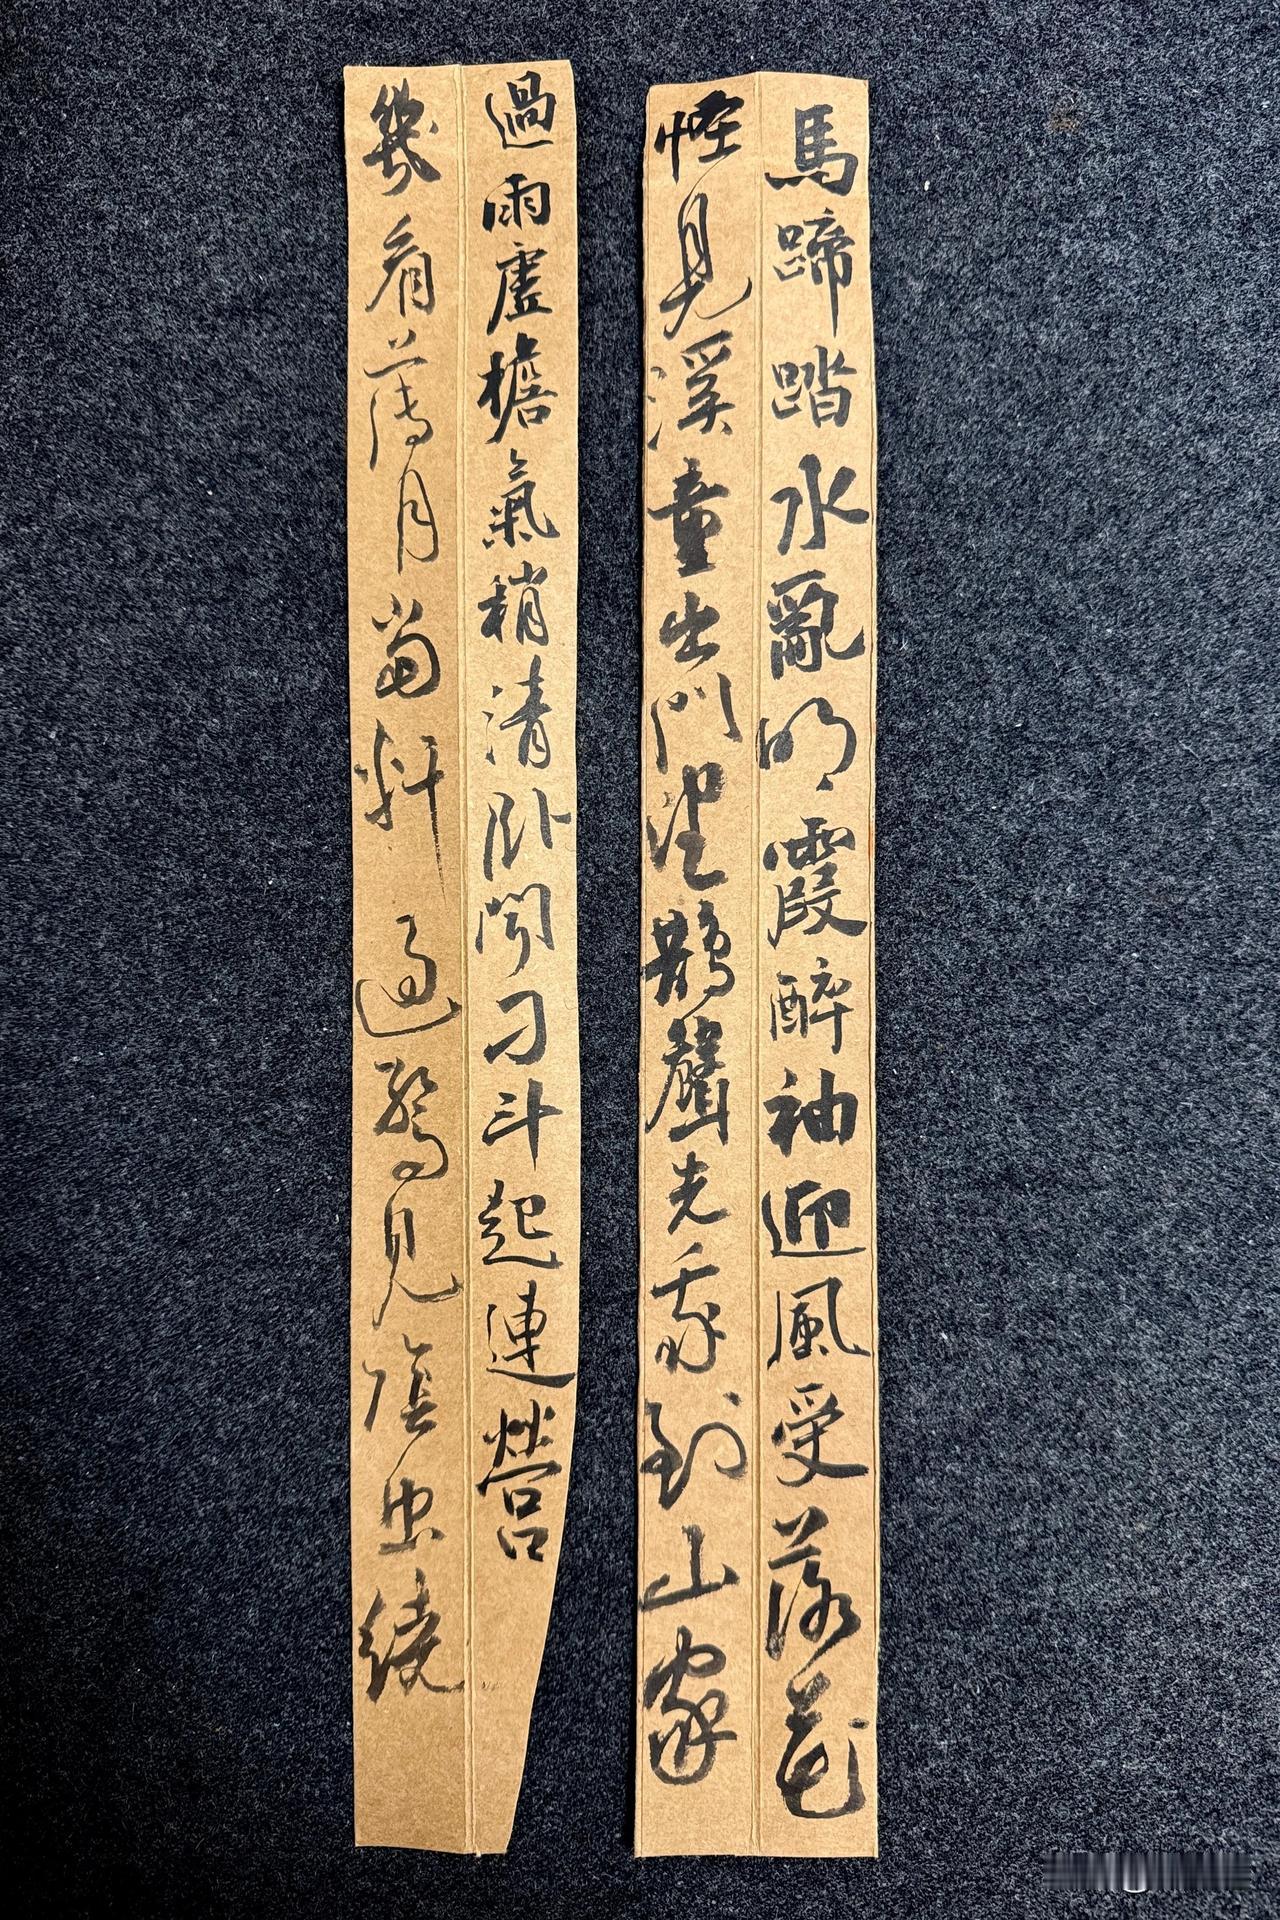 馬蹄踏水亂明霞醉袖迎風受落花
怪見溪童出門望鵲聲先我到山家
過雨虛檐氣稍清臥聞刁斗起連營
幾看薄月當軒過驚見陰虫繞